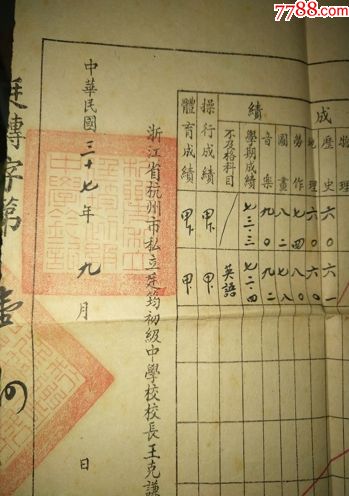 7788.com
成
績
物理
歷史 六〇 六一
地理 六〇 六〇
勞作 七四 七八
圖畫 八二 八〇
音樂 九〇 九二
學期成績 七三·三 七二·四
不及格科目 英語
操行成績 甲下 甲下
體育成績 甲下 甲
浙江省杭州市私立足均初級中學校校長王克謙
中華民國三十七年九月 日
轉字第